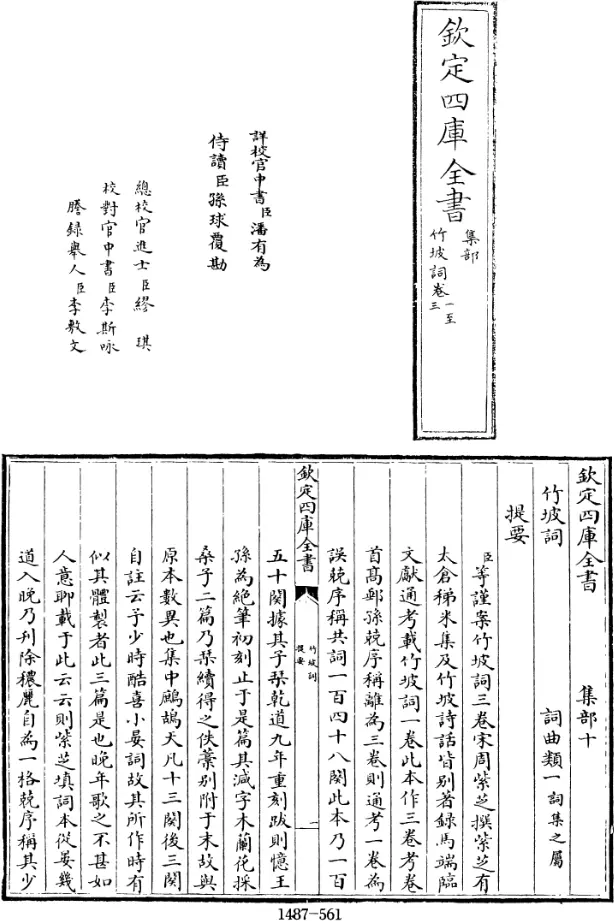 欽定四庫全書
集部
竹坡詞卷一至三
詳校官中書臣潘有為
侍讀臣孫球覆勘
總校官進士臣繆琪
校對官中書臣李斯咏
謄錄舉人臣李敷文
欽定四庫全書 集部十
竹坡詞 詞曲類一詞集之屬
提要
臣等謹案竹坡詞三卷宋周紫芝撰紫芝有
太倉稊米集及竹坡詩話皆别著錄馬端臨
文獻通考載竹坡詞一卷此本作三卷考卷
首髙郵孫兢序稱離為三卷則通考一卷為
誤兢序稱共詞一百四十八闋此本乃一百
欽定四庫全書
竹坡詞
提要
一
五十闋據其子栞乾道九年重刻跋則憶王
孫為絶筆初刻止于是篇其減字木蘭花採
桑子二篇乃栞續得之佚藁别附于末故與
原本數異也集中鷓鴣天凡十三闋後三闋
自註云予少時酷喜小晏詞故其所作時有
似其體製者此三篇是也晚年歌之不甚如
人意聊載于此云云則紫芝填詞本從晏幾
道入晚乃刋除穠麗自為一格兢序稱其少
1487-561